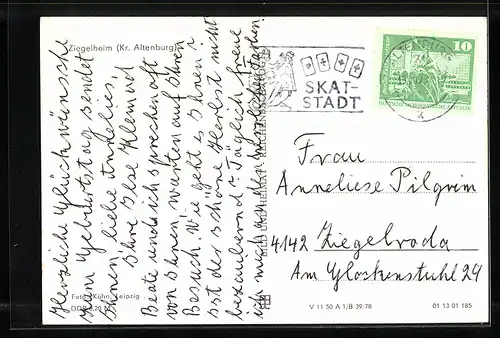 Ziegelheim (Kr. Altenburg)
Herzliche Glückwünsche
zum Geburtstag sendet
Ihnen, liebe Anneliese,
Ihre Ilse Klem
Beate und ich sprechen oft
von Ihnen, warten auf Ihren
Besuch. Wie geht es Ihnen?
Ist der schöne Herbst nicht
bezaubernd? Täglich freue
ich mich an der
SKAT-
STADT
10
DEUTSCHE DEMOKRATISCHE REPUBLIK
Frau
Anneliese Pilgrim
4142 Ziegelroda
Am Glockenstuhl 24
Foto: Kühn, Leipzig
V 11 50 A 1/B 39/78
01 13 01 185